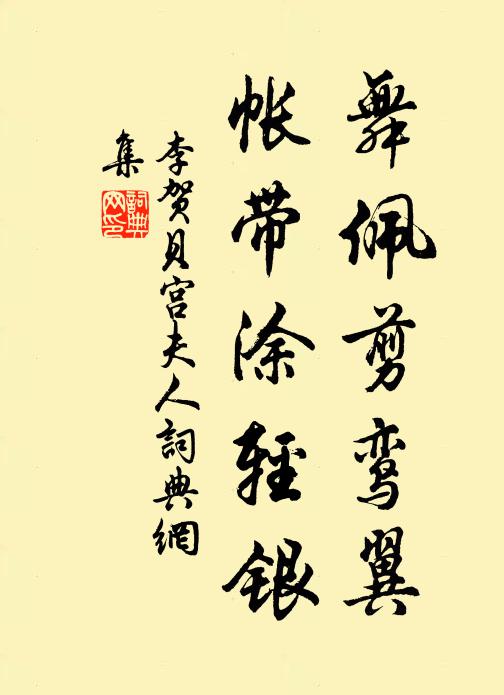 舞佩剪鸾翼
帐带涂輕銀
李贺貝宫夫人詞典網
集
詞典網印